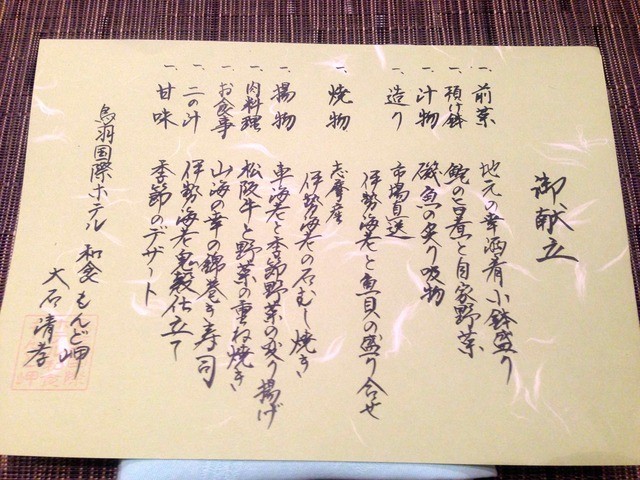 御献立
一、前菜 地元の幸酒肴小鉢盛り
一、預け鉢 鮑の旨煮と自家野菜
一、汁物 磯魚の炙り吸物
一、造り 市場直送
伊勢海老と魚貝の盛り合せ
一、焼物 志摩産
伊勢海老の石むし焼き
一、揚物 車海老と季節野菜の炙り揚げ
一、肉料理 松阪牛と野菜の重ね焼き
一、お食事 山海の幸の錦巻き寿司
一、二の汁 伊勢海老鬼殻仕立て
一、甘味 季節のデザート
鳥羽国際ホテル 和食 もんど岬
大石清孝